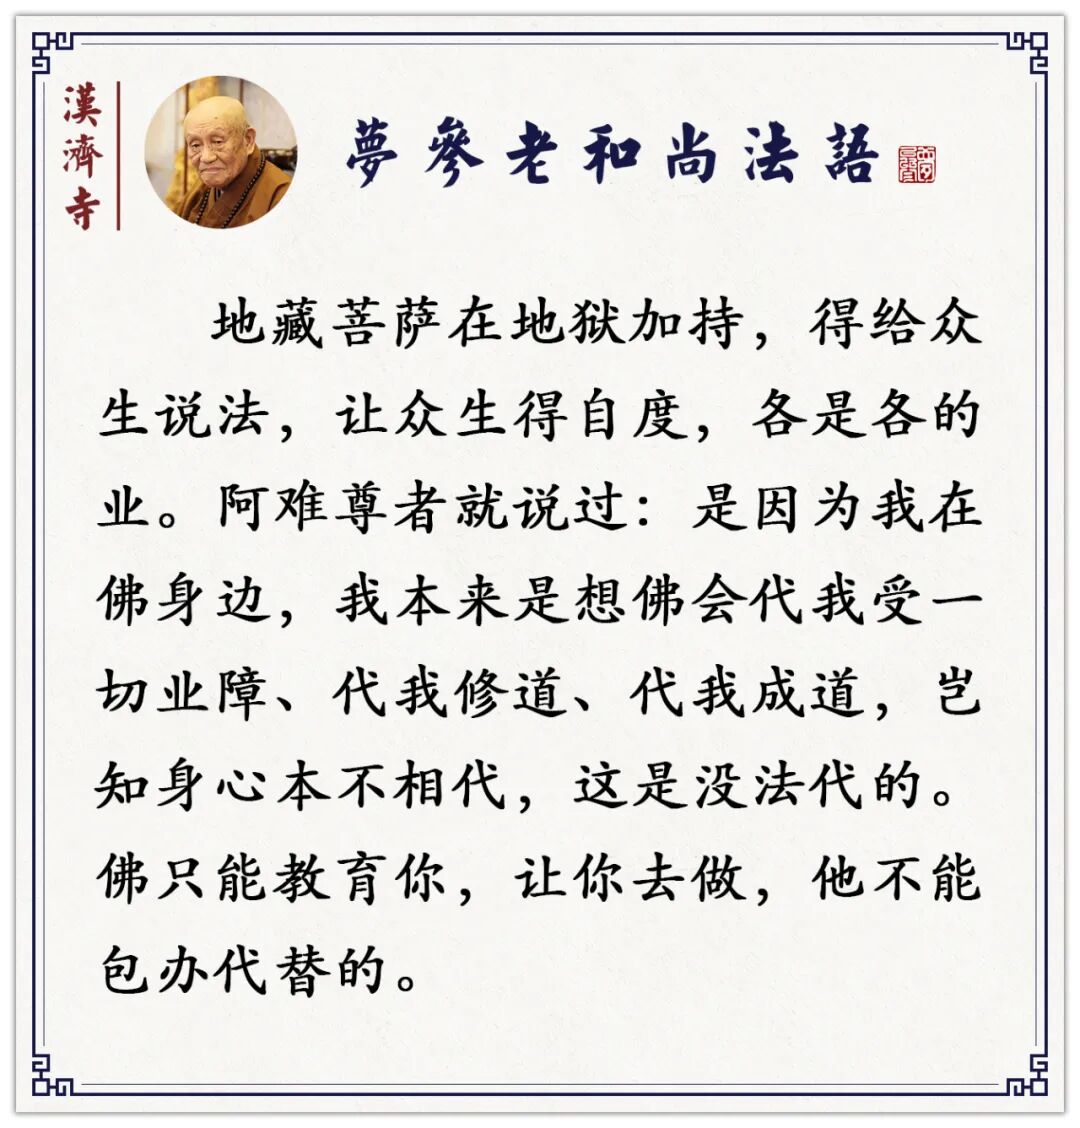 漢濟寺
夢參老和尚法語
地藏菩萨在地狱加持，得给众
生说法，让众生得自度，各是各的
业。阿难尊者就说过：是因为我在
佛身边，我本来是想佛会代我受一
切业障、代我修道、代我成道，岂
知身心本不相代，这是没法代的。
佛只能教育你，让你去做，他不能
包办代替的。